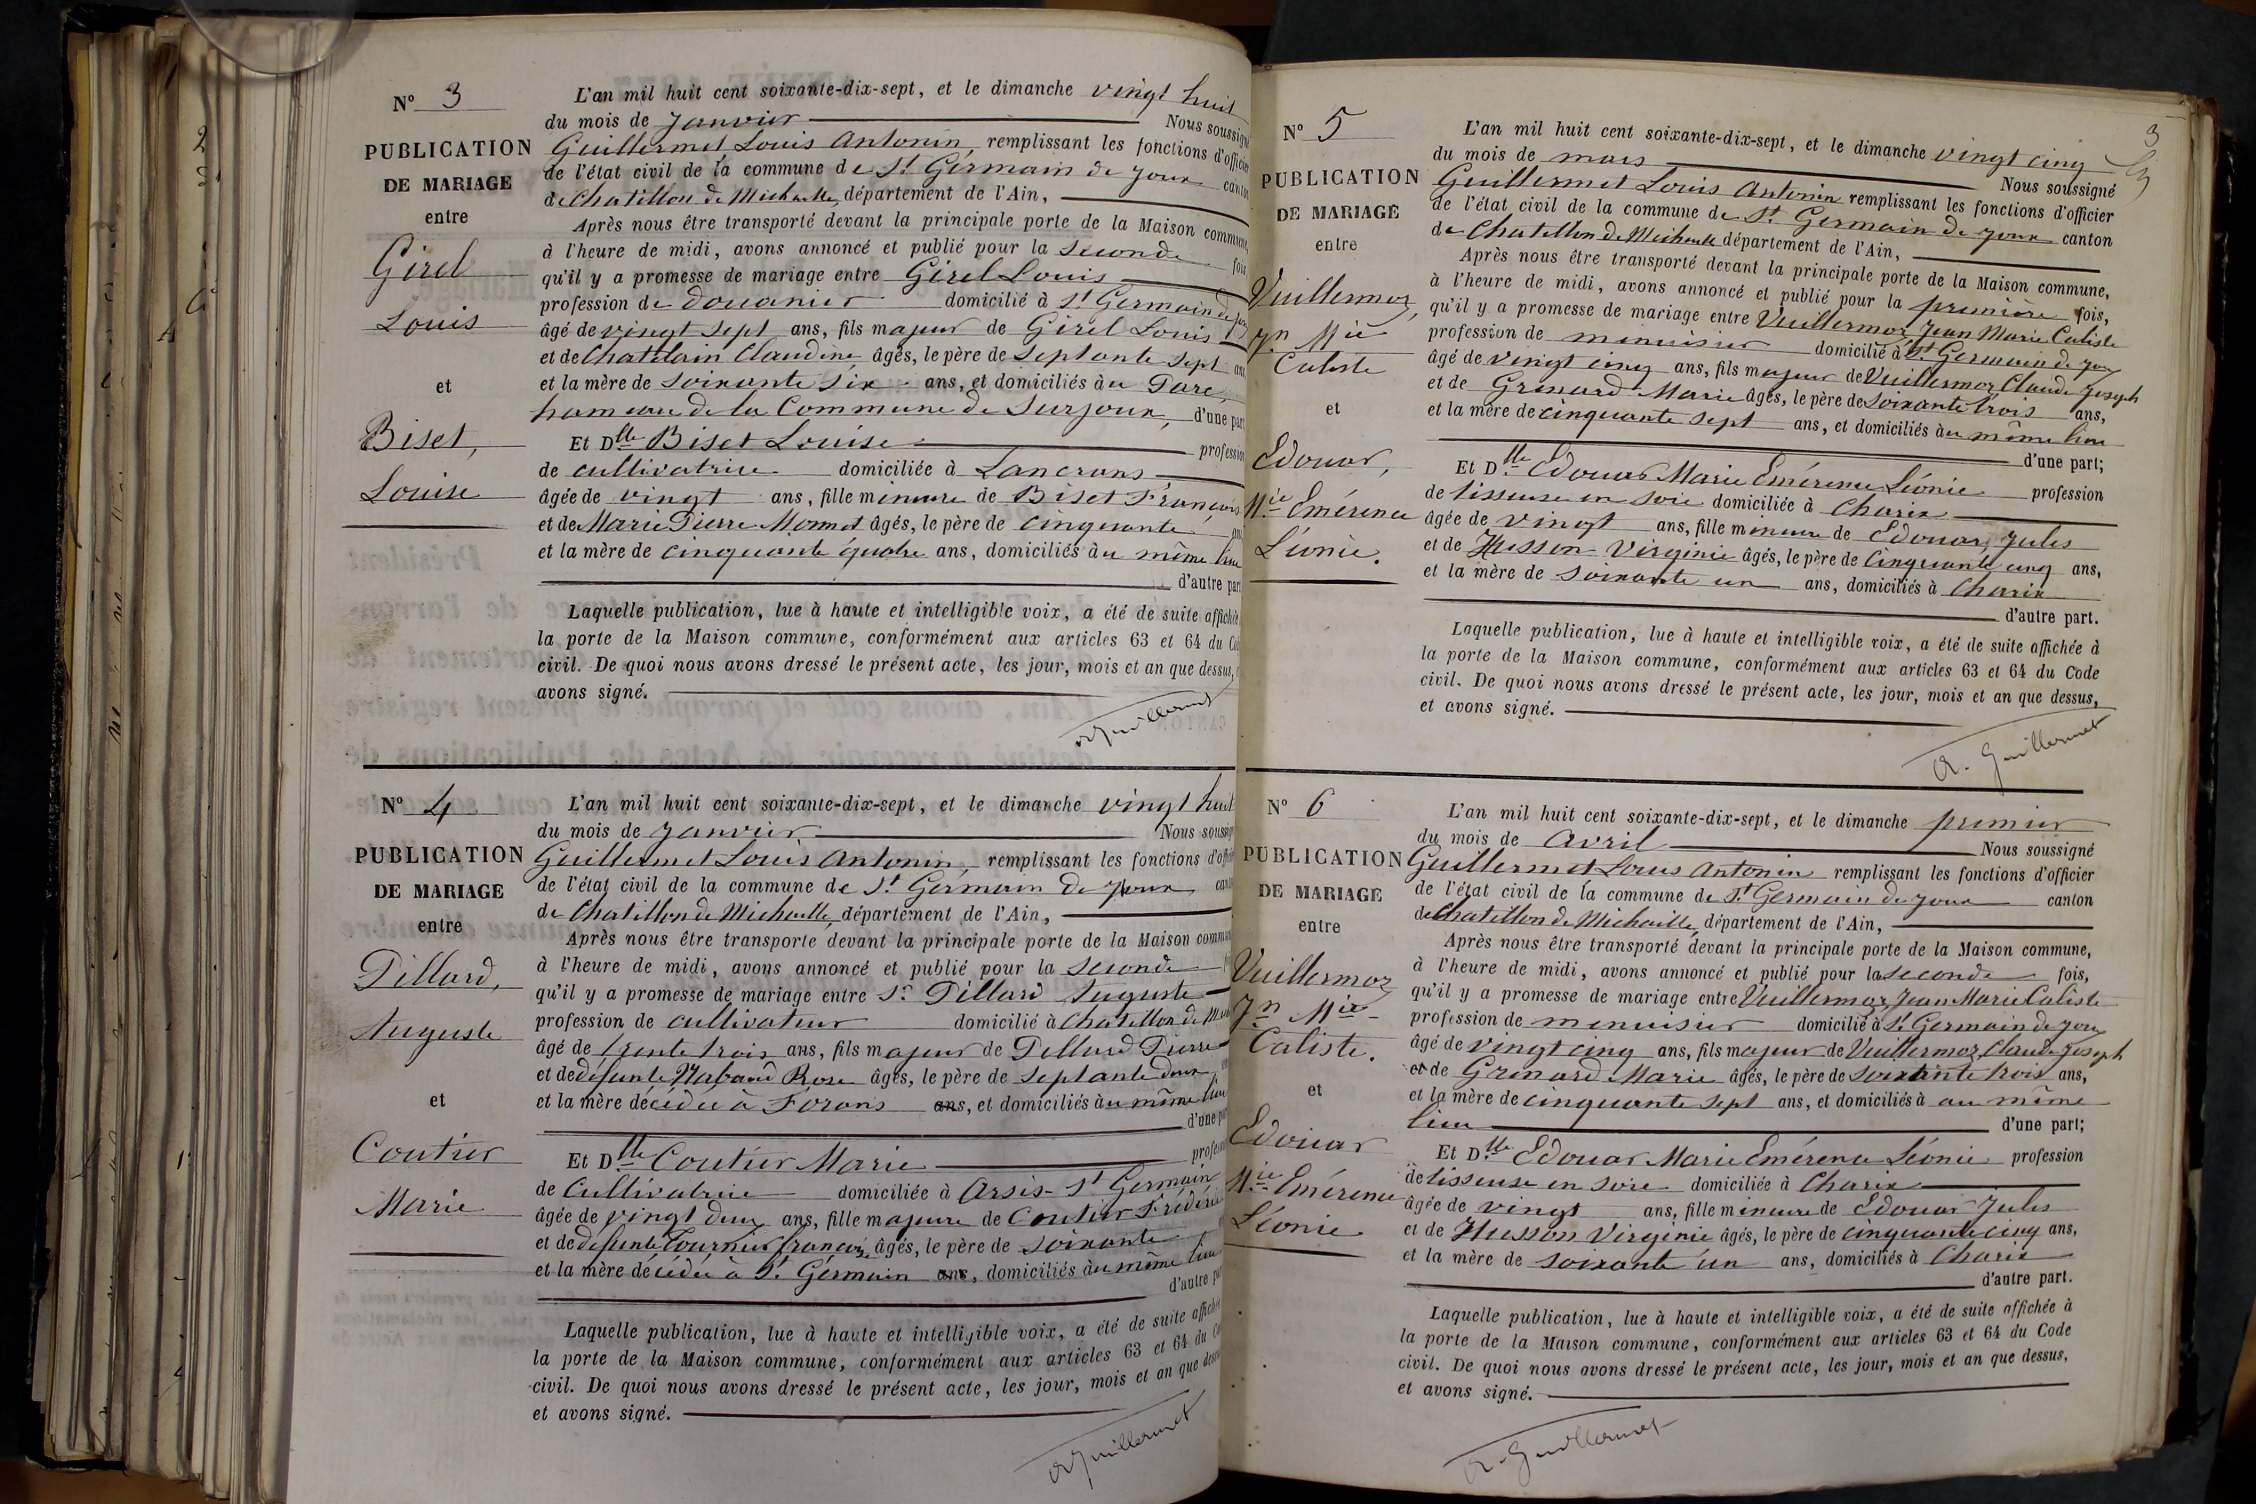 N° 3
PUBLICATION
DE MARIAGE
entre
Girel
Louis
et
Biset,
Louise
L'an mil huit cent soixante-dix-sept, et le dimanche vingt huit
du mois de Janvier Nous soussigné
Guillermet Louis Antonin, remplissant les fonctions d'officier
de l'état civil de la commune de St Germain de Joux canton
de Chatillon de Michaille, département de l'Ain,
Après nous être transporté devant la principale porte de la Maison commune,
à l'heure de midi, avons annoncé et publié pour la seconde fois,
qu'il y a promesse de mariage entre Girel Louis
profession de douanier domicilié à St Germain de Joux
âgé de vingt sept ans, fils majeur de Girel Louis
et de Chatelain Claudine âgés, le père de septante sept ans
et la mère de soixante six ans, et domiciliés à
hameau de la Commune de Surjoux, d'une part
Et Dlle Biset Louise profession
de cultivatrice domiciliée à Lancrans
âgée de vingt ans, fille mineure de Biset François
et de Marie Pierre Monnet âgés, le père de cinquante
et la mère de cinquante quatre ans, domiciliés à u même lieu
d'autre part
Laquelle publication, lue à haute et intelligible voix, a été de suite affichée
la porte de la Maison commune, conformément aux articles 63 et 64 du Code
civil. De quoi nous avons dressé le présent acte, les jour, mois et an que dessus,
avons signé.
A Guillermet
N° 4
PUBLICATION
DE MARIAGE
entre
Pillard,
Auguste
et
Coutier
Marie
L'an mil huit cent soixante-dix-sept, et le dimanche vingt huit
du mois de Janvier Nous soussigné
Guillermet Louis Antonin, remplissant les fonctions d'officier
de l'état civil de la commune de St Germain de Joux canton
de Chatillon de Michaille, département de l'Ain,
Après nous être transporté devant la principale porte de la Maison commune
à l'heure de midi, avons annoncé et publié pour la seconde
qu'il y a promesse de mariage entre Sr Pillard Auguste
profession de cultivateur domicilié à Chatillon de Mich
âgé de trente trois ans, fils majeur de Pillard Pierre
et de défunte Rose âgés, le père de septante deux
et la mère décédée à Forans ans, et domiciliés à u même lieu
d'une part
Et Dlle Coutier Marie profession
de Cultivatrice domiciliée à Arsis-St Germain
âgée de vingt deux ans, fille majeure de Coutier Frédéric
et de défunte Tournier françoise âgés, le père de soixante
et la mère décédée à St. Germain ans, domiciliés à u même lieu
d'autre part
Laquelle publication, lue à haute et intelligible voix, a été de suite affichée
la porte de la Maison commune, conformément aux articles 63 et 64 du Code
civil. De quoi nous avons dressé le présent acte, les jour, mois et an que dessus
et avons signé.
A Guillermet
3
N° 5
PUBLICATION
DE MARIAGE
entre
Vuillermoz,
Jn Mie
Caliste
et
Edouar,
Mie Emérence
Léonie.
L'an mil huit cent soixante-dix-sept, et le dimanche vingt cinq
du mois de mars Nous soussigné
Guillermet Louis Antonin remplissant les fonctions d'officier
de l'état civil de la commune de St Germain de Joux canton
de Chatillon de Michaille département de l'Ain,
Après nous être transporté devant la principale porte de la Maison commune,
à l'heure de midi, avons annoncé et publié pour la première fois,
qu'il y a promesse de mariage entre Vuillermoz Jean Marie Caliste
profession de menuisier domicilié à St Germain de Joux
âgé de vingt cinq ans, fils majeur de Vuillermoz Claude Joseph
et de Grenard Marie âgés, le père de soixante trois ans,
et la mère de cinquante sept ans, et domiciliés à u même lieu
d'une part;
Et Dlle Edouar Marie Emérence Léonie profession
de tisseuse en soie domiciliée à Charix
âgée de vingt ans, fille mineure de Edouar, Jules
et de Husson Virginie âgés, le père de cinquante cinq ans,
et la mère de soixante un ans, domiciliés à Charix
d'autre part.
Laquelle publication, lue à haute et intelligible voix, a été de suite affichée à
la porte de la Maison commune, conformément aux articles 63 et 64 du Code
civil. De quoi nous avons dressé le présent acte, les jour, mois et an que dessus,
et avons signé.
A. Guillermet
N° 6
PUBLICATION
DE MARIAGE
entre
Vuillermoz
Jn Mie
Caliste.
et
Edouar
Mie Emérence
Léonie
L'an mil huit cent soixante-dix-sept, et le dimanche premier
du mois de Avril Nous soussigné
Guillermet Louis Antonin remplissant les fonctions d'officier
de l'état civil de la commune de St Germain de Joux canton
de Chatillon de Michaille, département de l'Ain,
Après nous être transporté devant la principale porte de la Maison commune,
à l'heure de midi, avons annoncé et publié pour la seconde fois,
qu'il y a promesse de mariage entre Vuillermoz Jean Marie Caliste
profession de menuisier domicilié à St Germain de Joux
âgé de vingt cinq ans, fils majeur de Vuillermoz Claude Joseph
et de Grenard Marie âgés, le père de soixante trois ans,
et la mère de cinquante sept ans, et domiciliés à au même
lieu d'une part;
Et Dlle Edouar Marie Emérence Léonie profession
de tisseuse en soie domiciliée à Charix
âgée de vingt ans, fille mineure de Edouar Jules
et de Husson Virginie âgés, le père de cinquante cinq ans,
et la mère de soixante un ans, domiciliés à Charix
d'autre part.
Laquelle publication, lue à haute et intelligible voix, a été de suite affichée à
la porte de la Maison commune, conformément aux articles 63 et 64 du Code
civil. De quoi nous avons dressé le présent acte, les jour, mois et an que dessus,
et avons signé.
A. Guillermet